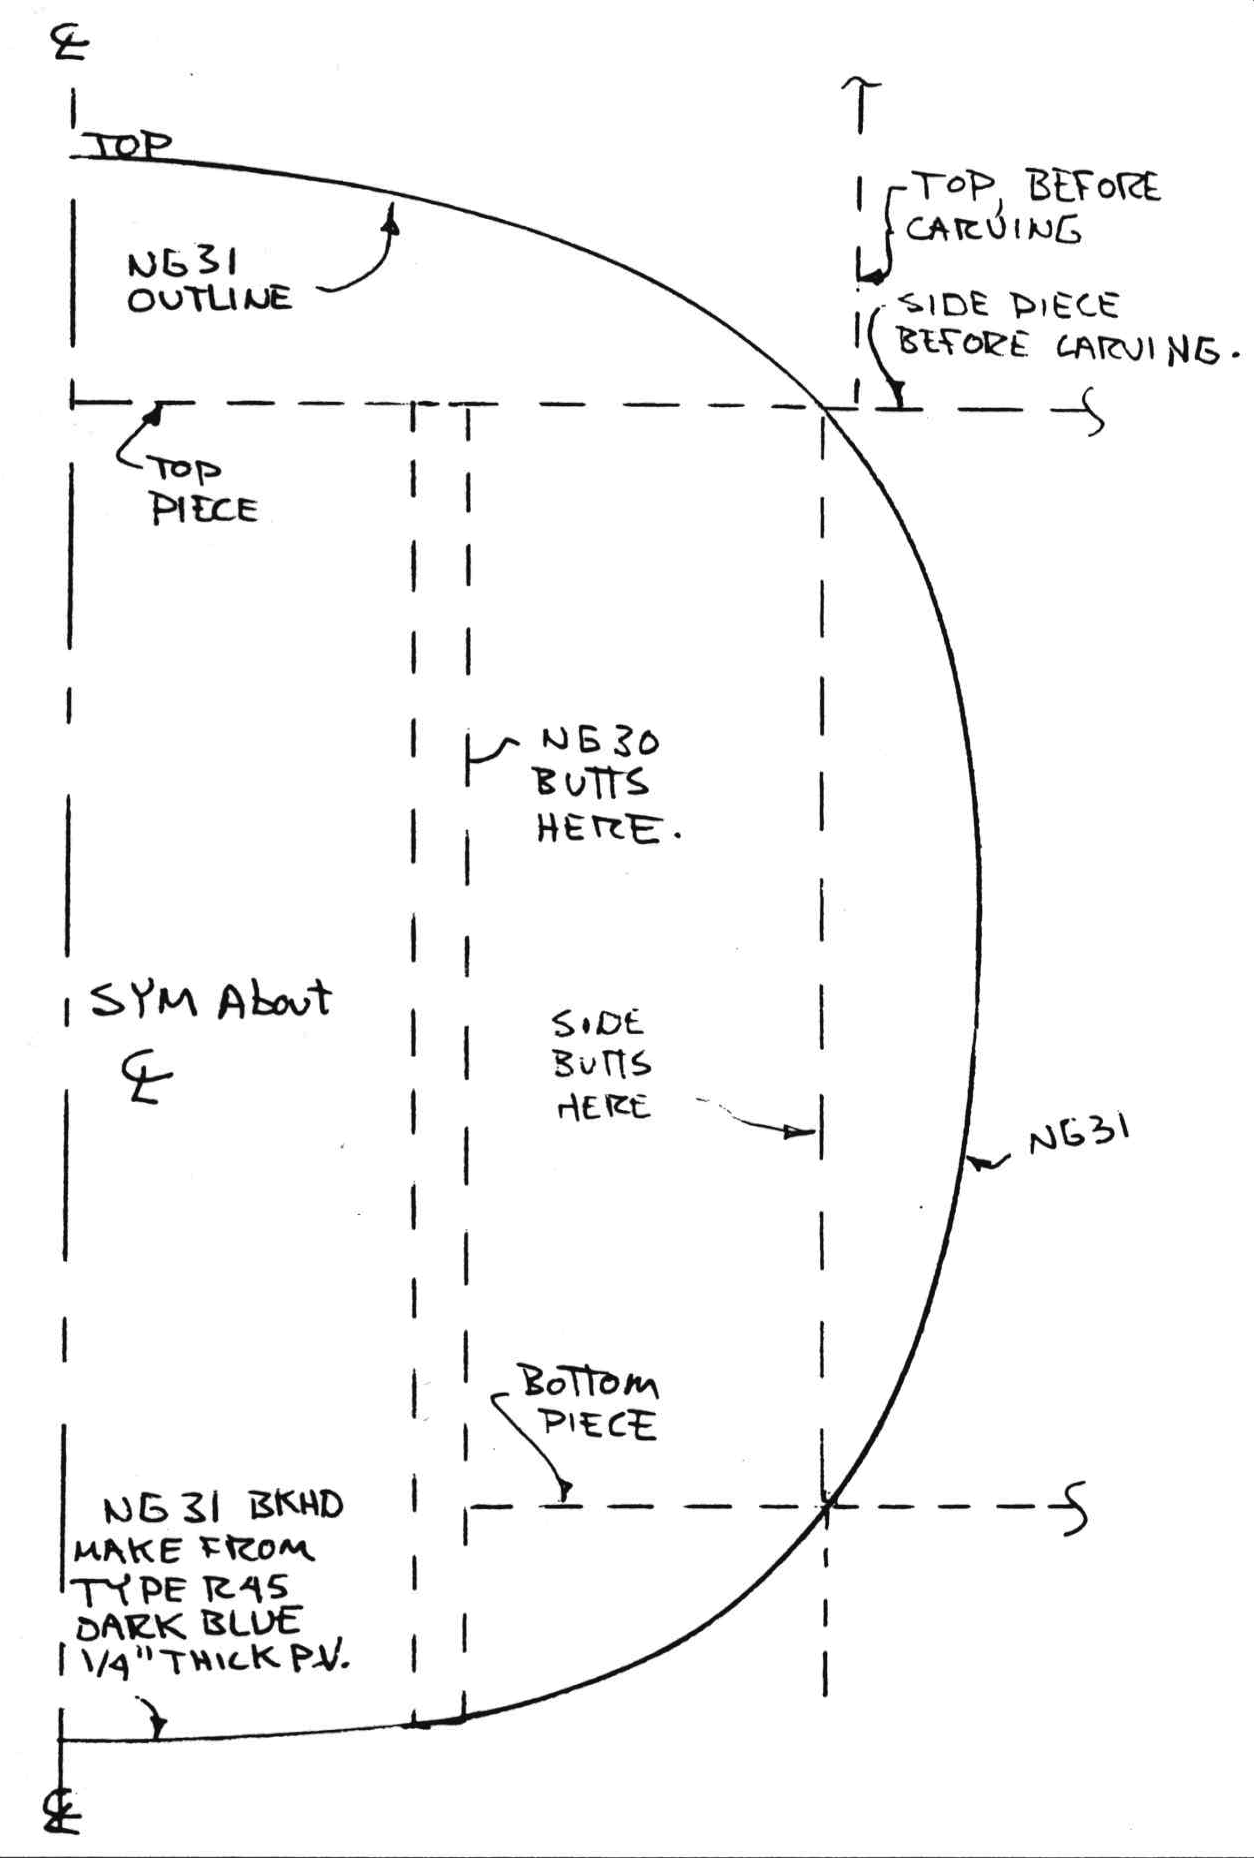 ℄
TOP
TOP, BEFORE
CARVING
NG31
OUTLINE
SIDE PIECE
BEFORE CARVING.
TOP
PIECE
NG30
BUTTS
HERE.
SYM About
℄
SIDE
BUTTS
HERE
NG31
BOTTOM
PIECE
NG31 BKHD
MAKE FROM
TYPE R45
DARK BLUE
1/4" THICK P.V.
℄